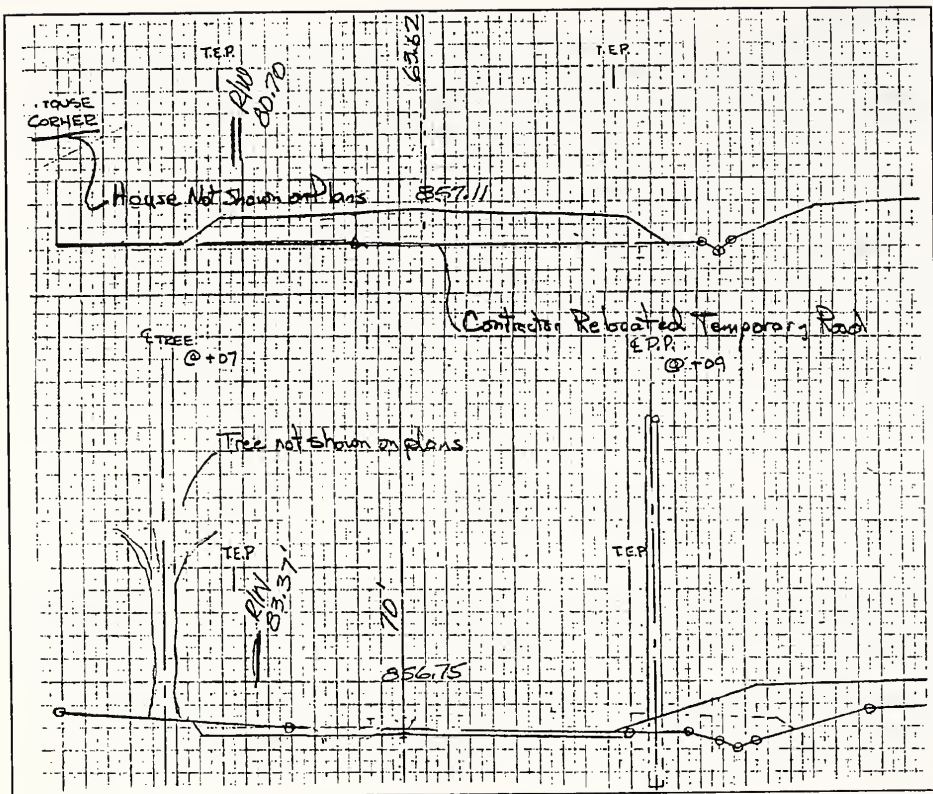 T.E.P.
R/W
80.70
63.62
T.E.P.
HOUSE
CORNER
House Not Shown on Plans
857.11
Contractor Relocated Temporary Road
℄ TREE
@ +07
℄ P.P.
@ +09
Tree not shown on plans
T.E.P.
R/W
83.37'
70'
T.E.P.
856.75